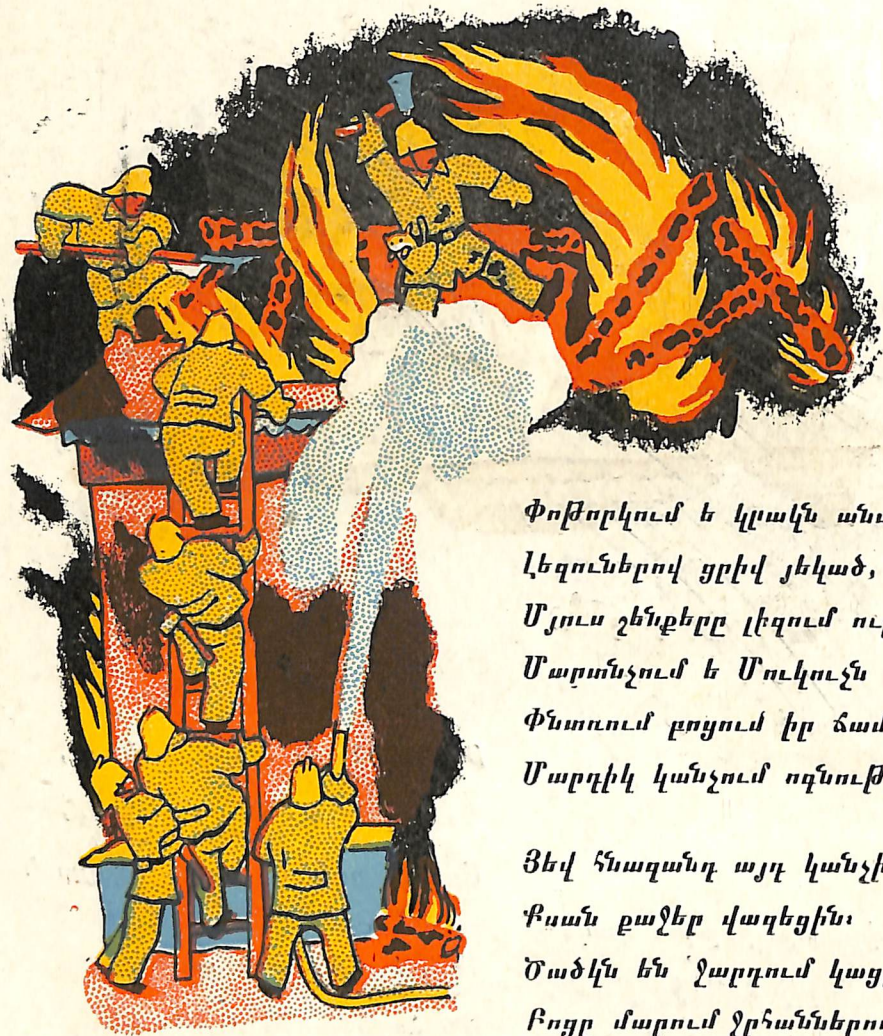 Փոթորկում ե կրակն
Լեզուներով ցրիվ յեկած,
Մյուս շենքերը լիզում
Մարտնչում ե Մուկուչն
Փնտռում բոցում իր
Մարդիկ կանչում
Յեվ հնազանդ այդ
Քսան քաջեր վազեցին։
Ծածկն են ջարդում
Բոցը մարում